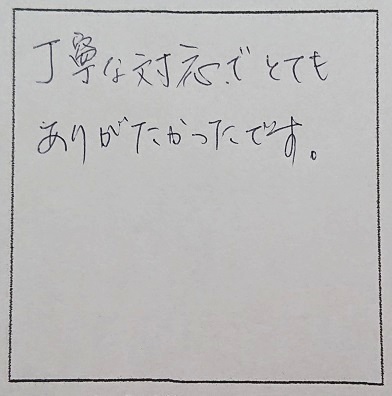 丁寧な対応でとても
ありがたかったです。